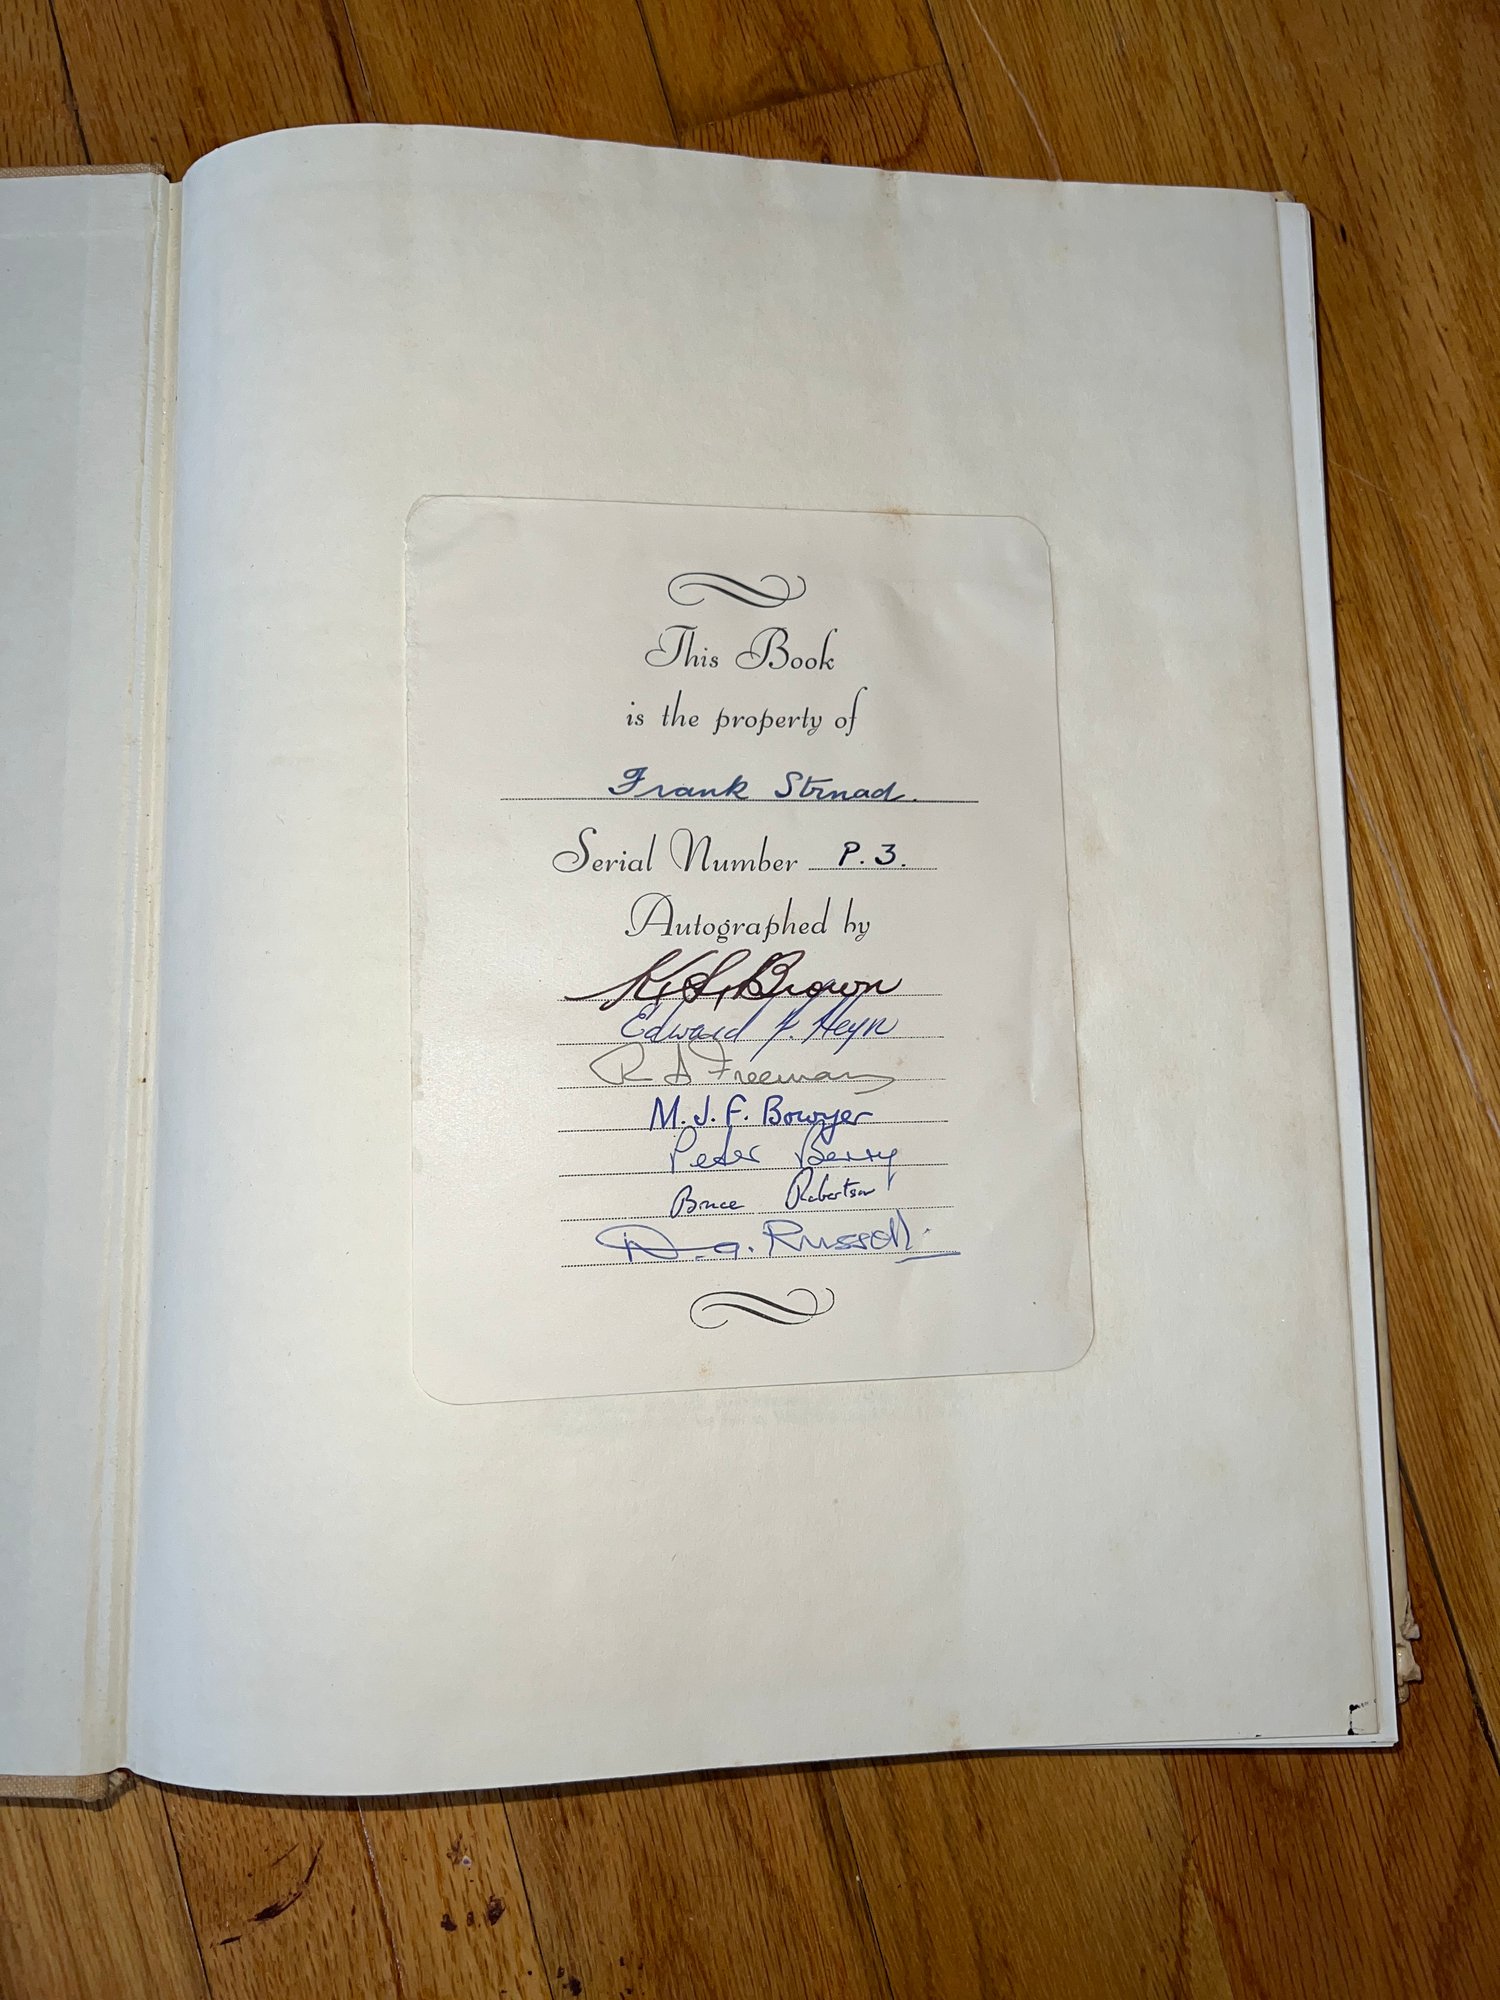 This Book
is the property of
Frank Strnad.
Serial Number P. 3.
Autographed by
K. S. Brown
Edward F. Heyn
R A Freeman
M. J. F. Bowyer
Peter Berry
Bruce Robertson
D. A. Russell.